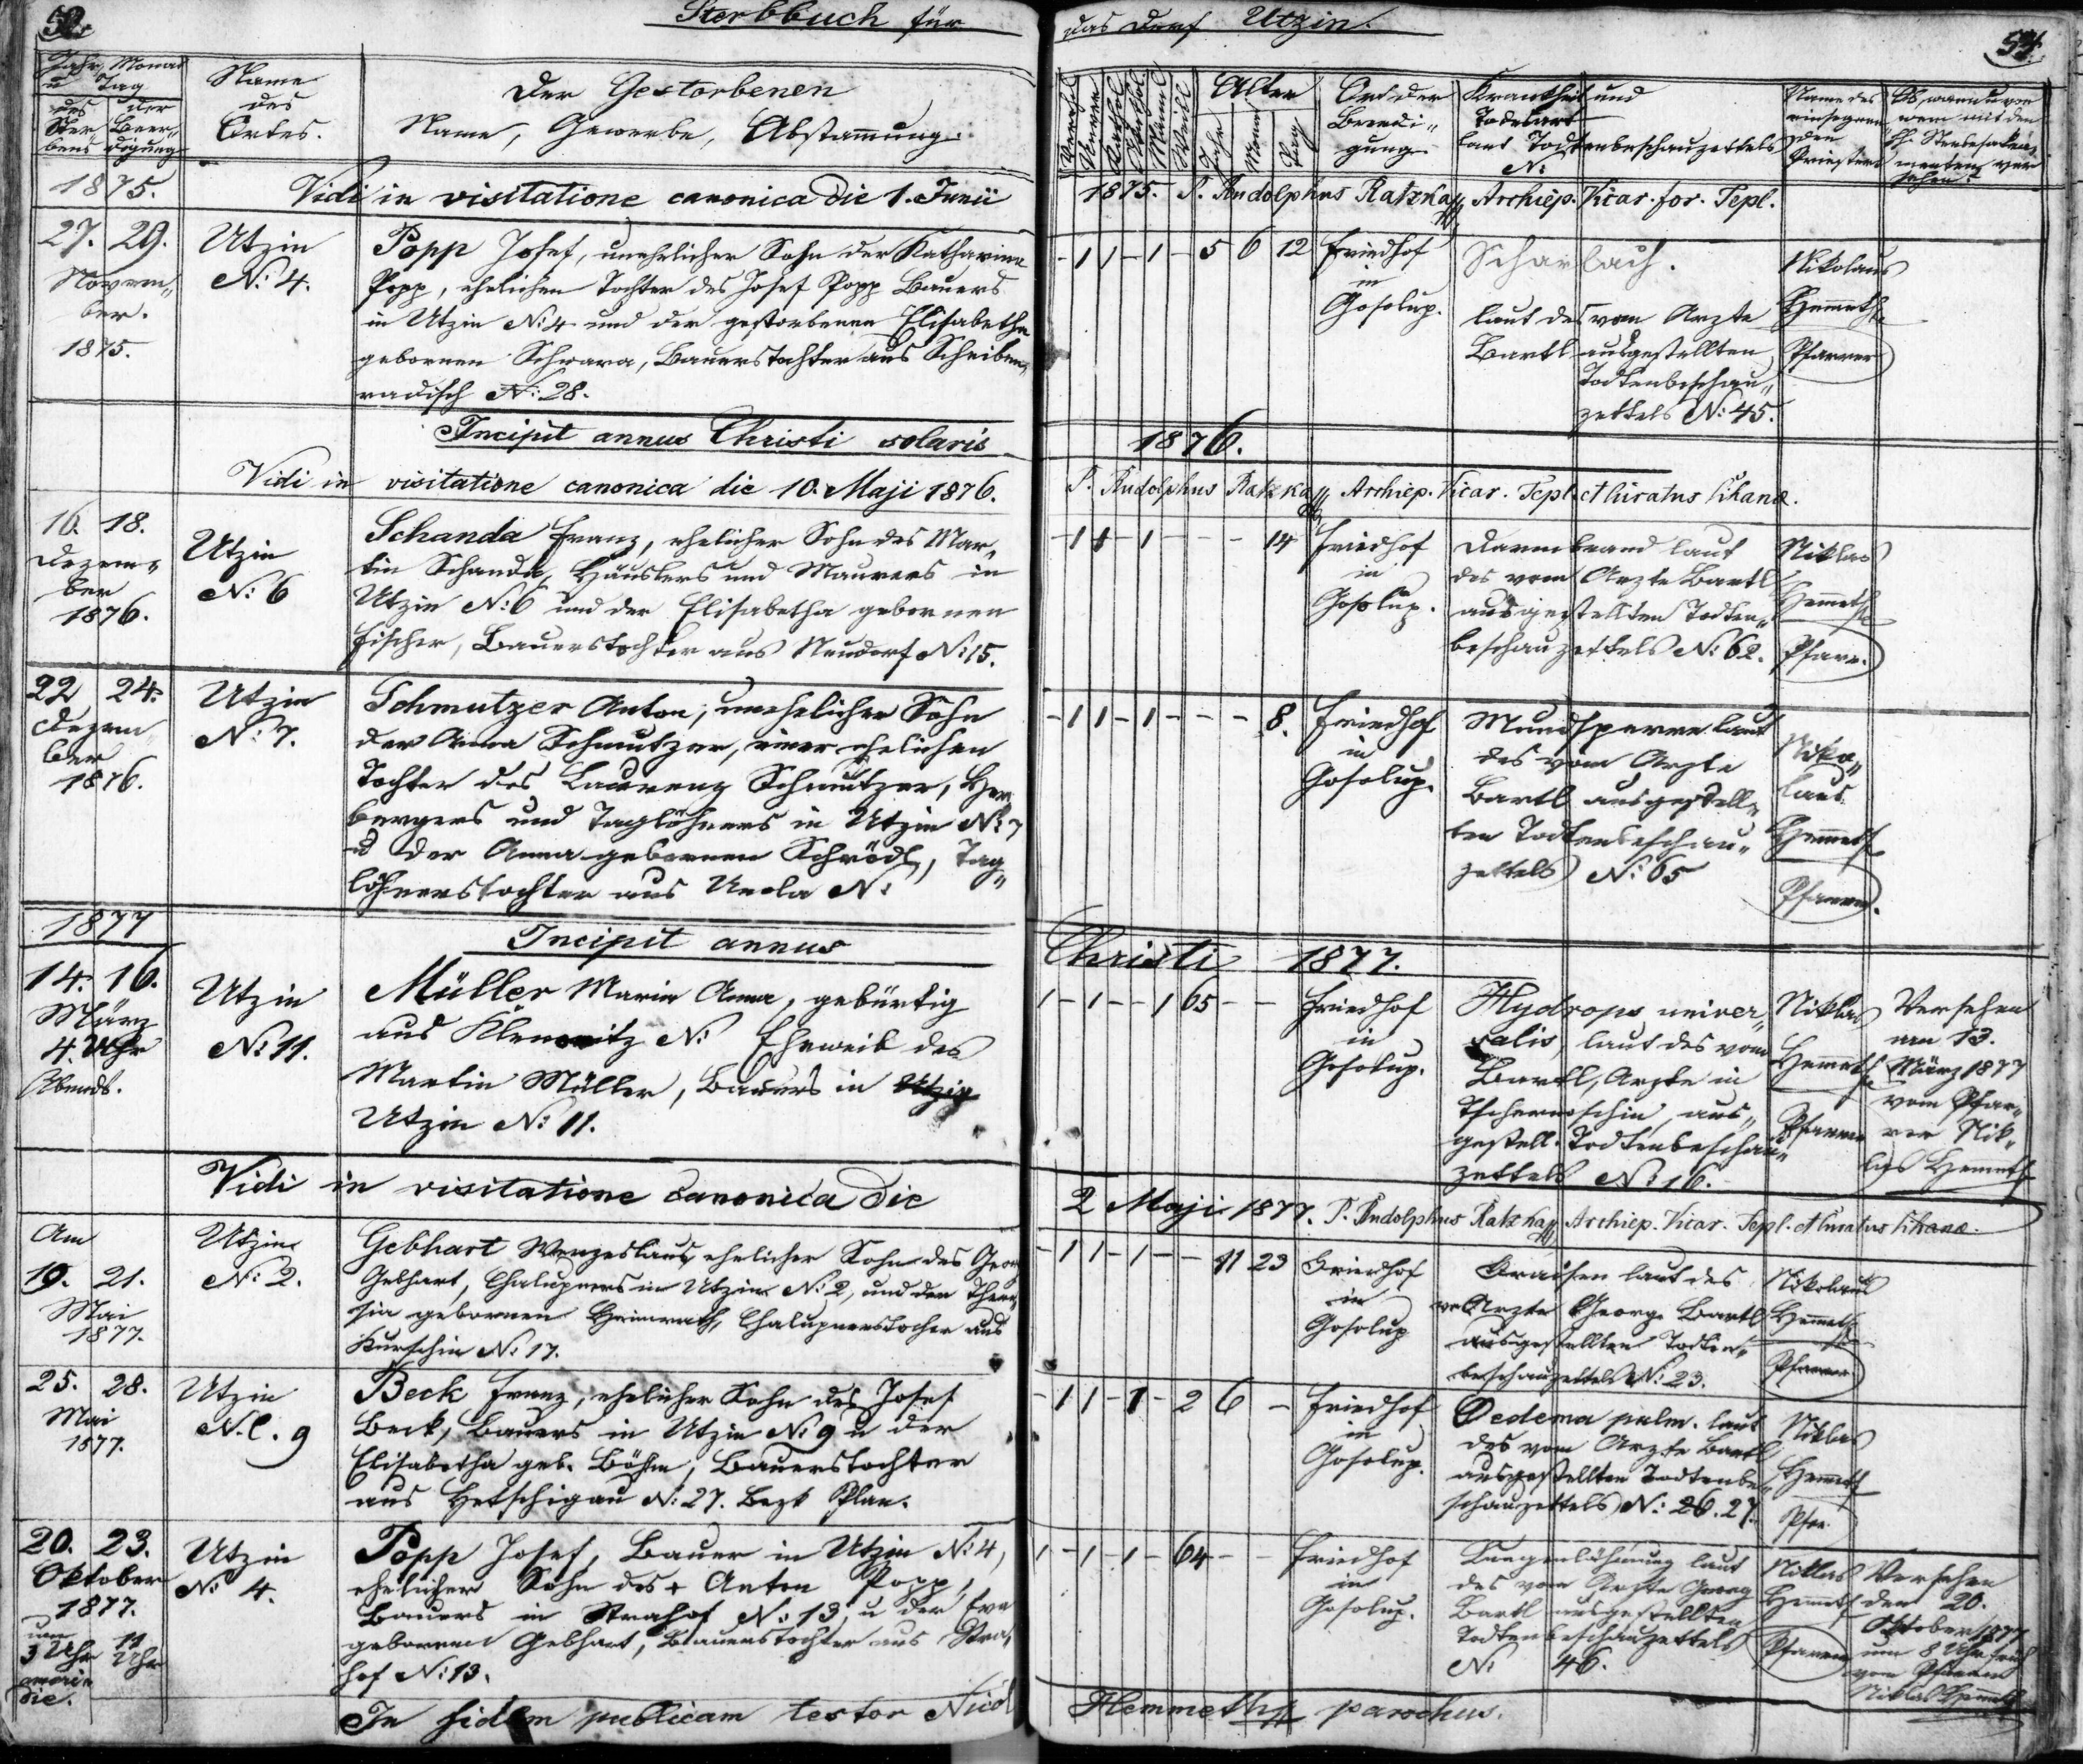 Sterbbuch für das Dorf Utzin.
Jahr, Monat
u Tag
des Ster-
bens
der Beer-
digung
Name
des
Ortes.
Der Gestorbenen
Name, Gewerbe, Abstamung.
Alter
Jahr
Monat
Tag
Ort der
Beerdi-
gung
Krankheit und
Todesart
laut Todtenbeschauzettels
N:
Name des
einsegnen-
den
Priesters
Ob, wann u von
wem mit den
hl. Sterbesakra-
menten ver
sehen?
1875.
Vidi in visitatione canonica die 1. Junii 1875. P. Rudolphus Ratzka Archiep. Vicar. for. Tepl.
27. 29.
Novem-
ber.
1875.
Utzin
N: 4.
Popp Josef, unehelicher Sohn der Katharina
Popp, ehelichen Tochter des Josef Popp Bauers
in Utzin N: 4 und der gestorbenen Elisabetha
gebornen Schwara, Bauerstochter aus Scheiben-
radisch N: 28.
- 1 1 - 1 - 5 6 12
Friedhof
in
Gosolup.
Scharlach.
laut des vom Arzte
Bartl ausgestellten
Todtenbeschau-
zettels N: 45.
Nikolaus
Hemeth
Pfarrer
Incipit annus Christi solaris 1876.
Vidi in visitatione canonica die 10. Maji 1876. P. Rudolphus Ratzka Archiep. Vicar. Tepl.
16. 18.
Dezem-
ber
1876.
Utzin
N: 6
Schanda Franz, ehelicher Sohn des Mar-
tin Schanda, Häuslers und Maurers in
Utzin N: 6 und der Elisabetha gebornen
Fischer, Bauerstochter aus Neudorf N: 15.
- 1 1 - 1 - - - 14
Friedhof
in
Gosolup.
Darmbrand laut
des vom Arzte Bartl
ausgestellten Todten-
beschauzettels N: 62.
Niklas
Hemeth
Pfarr.
22 24.
Dezem
ber
1876.
Utzin
N: 7.
Schmutzer Anton, unehelicher Sohn
der Anna Schmutzer, einer ehelichen
Tochter des Laurenz Schmutzer, Her
bergers und Taglöhners in Utzin N: 7
u der Anna gebornen Schrödl, Tag-
löhnerstochter aus N:
- 1 1 - 1 - - - 8.
Friedhof
in
Gosolup.
Mundsperre laut
des vom Arzte
Bartl ausgestell-
ten Todtenbeschau-
zettels N: 65
Niko-
laus
Hemeth
Pfarrer.
1877
Incipit annus Christi 1877.
14. 16.
März
4. Uhr
Abends.
Utzin
N: 11.
Müller Maria Anna, gebürtig
aus N: Eheweib des
Martin Müller, Bauers in Utzin
Utzin N: 11.
1 - 1 - - 1 65 - -
Friedhof
in
Gosolup.
Hydrops univer-
salis, laut des vom
Bartl, Arzte in
Tschernoschin, aus-
gestell. Todtenbeschau-
zettels N: 16.
Niklas
Hemeth
Pfarrer
Versehen
am 13.
März 1877
vom Pfar-
rer Nik-
las Hemeth
Vidi in visitatione canonica die 2 Maji 1877. P. Rudolphus Ratzka Archiep. Vicar. Tepl.
Am
19. 21.
Mai
1877.
Utzin
N: 2.
Gebhart Wenzeslaus, ehelicher Sohn des Georg
Gebhart, Chalupners in Utzin N: 2, und der There-
sia gebornen Heinrath, Chalupnerstocher aus
Kurschin N: 17.
- 1 1 - 1 - - 11 23
Friedhof
in
Gosolup
Fraisen laut des
v Arzte Georg Bartl
ausgestellten Todten-
beschauzettels N: 23.
Nikolaus
Hemeth
Pfarrer
25. 28.
Mai
1877.
Utzin
N.C. 9
Beck Franz, ehelicher Sohn des Josef
Beck, Bauers in Utzin N: 9 u der
Elisabetha geb. Böhm, Bauerstochter
aus Hetschigau N: 27. Bezk Plan.
- 1 1 - 1 - 2 6 -
Friedhof
in
Gosolup.
Oedema pulm. laut
des vom Arzte Bartl
ausgestellten Todtenbe-
schauzettels N: 26. 27.
Niklas
Hemeth
Pfar.
20. 23.
Oktober
1877.
um
3 Uhr
11
Uhr
die.
Utzin
N: 4.
Popp Josef, Bauer in Utzin N: 4,
ehelicher Sohn des + Anton Popp,
Bauers in Strahof N: 13, u der Eva
gebornen Gebhart, Bauerstochter aus Stra-
hof N: 13.
1 - 1 - 1 - 64 - -
Friedhof
in
Gosolup.
Lungenlähmung laut
des vom Arzte Georg
Bartl ausgestellten
Todtenbeschauzettels
N: 46.
Niklas
Hemeth
Pfarrer
Versehen
den 20.
Oktober 1877
um 8 Uhr früh
vom Pfarrer
Niklas Hemeth
In fidem publicam testor Nicol Hemmeth parochus.